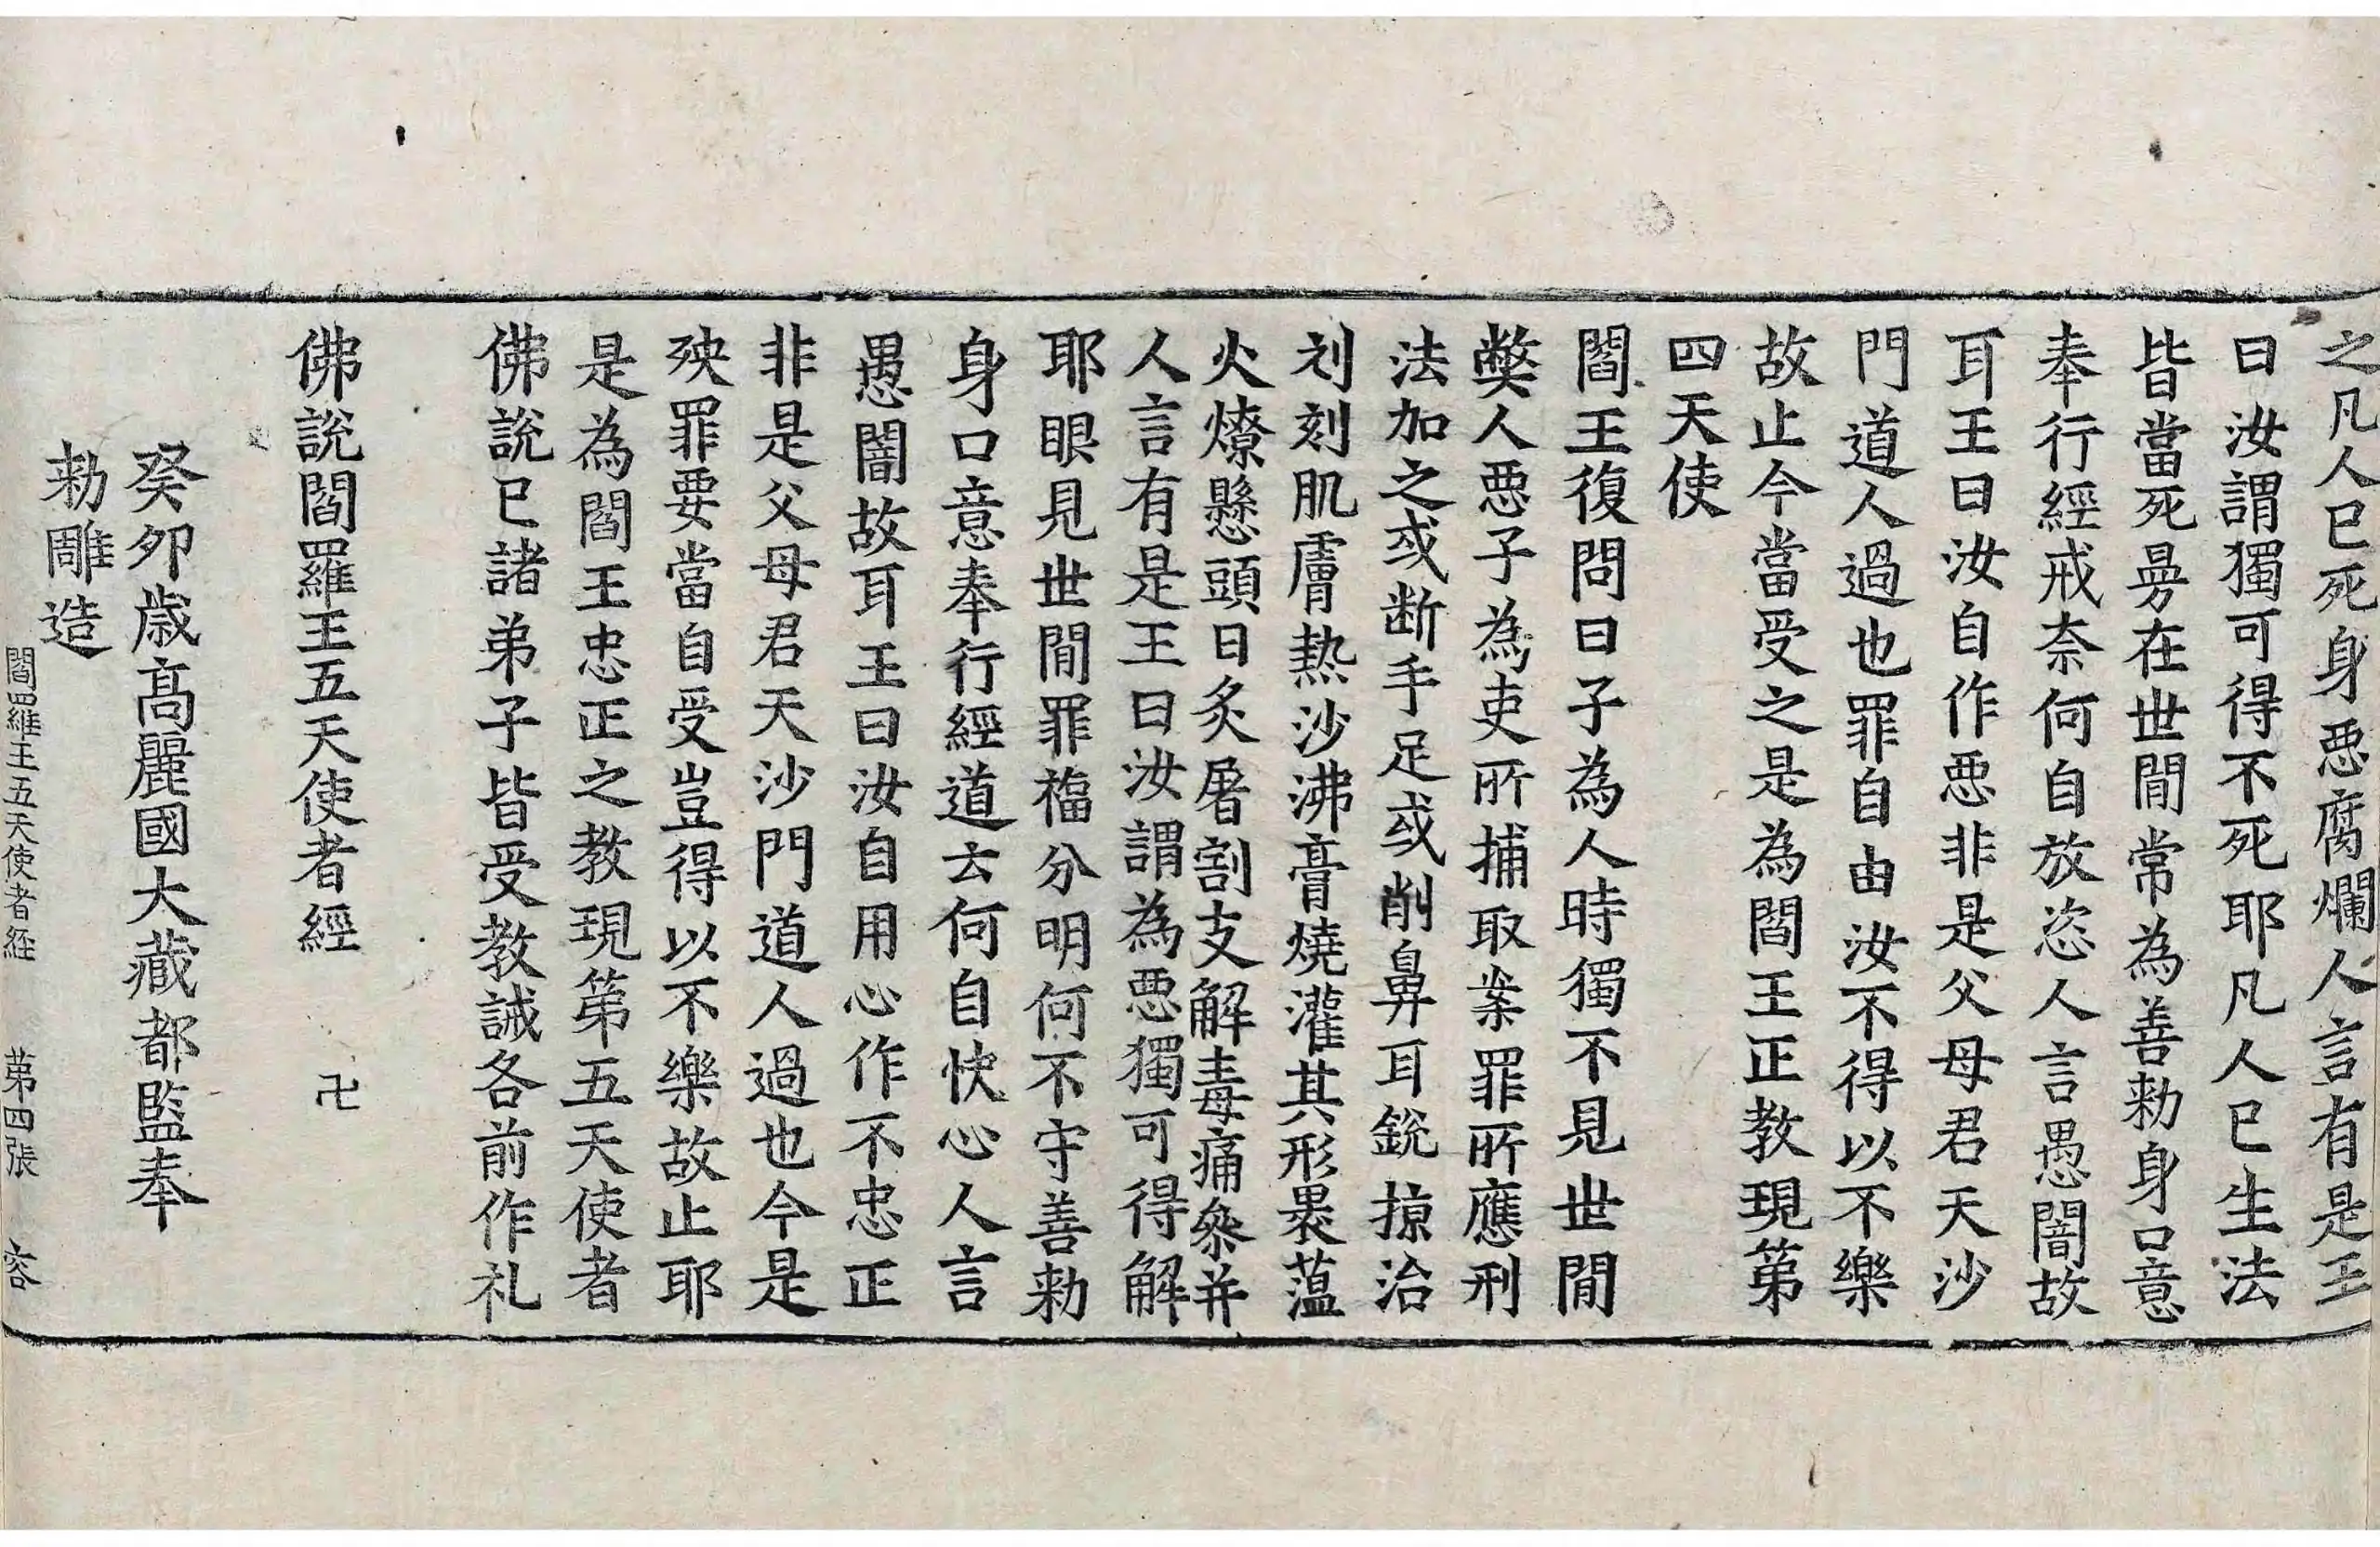 之凡人已死身惡腐爛人言有是王
曰汝謂獨可得不死耶凡人已生法
皆當死曼在世間常為善勅身口意
奉行經戒奈何自放恣人言愚闇故
耳王曰汝自作惡非是父母君天沙
門道人過也罪自由汝不得以不樂
故止今當受之是為閻王正教現第
四天使
閻王復問曰子為人時獨不見世間
弊人惡子為吏所捕取案罪所應刑
法加之或断手足或削鼻耳銳掠治
刻肌膚熱沙沸膏燒灌其形裹蕰
火燎懸頭日炙屠割支解毒痛叅并
人言有是王曰汝謂為惡獨可得解
耶眼見世間罪福分明何不守善勅
身口意奉行經道云何自快心人言
愚闇故耳王曰汝自用心作不忠正
非是父母君天沙門道人過也今是
殃罪要當自受豈得以不樂故止耶
是為閻王忠正之教現第五天使者
佛說已諸弟子皆受教誡各前作礼
佛說閻羅王五天使者經 卍
癸卯歲高麗國大藏都監奉
勅雕造
閻羅王五天使者経 第四張 容